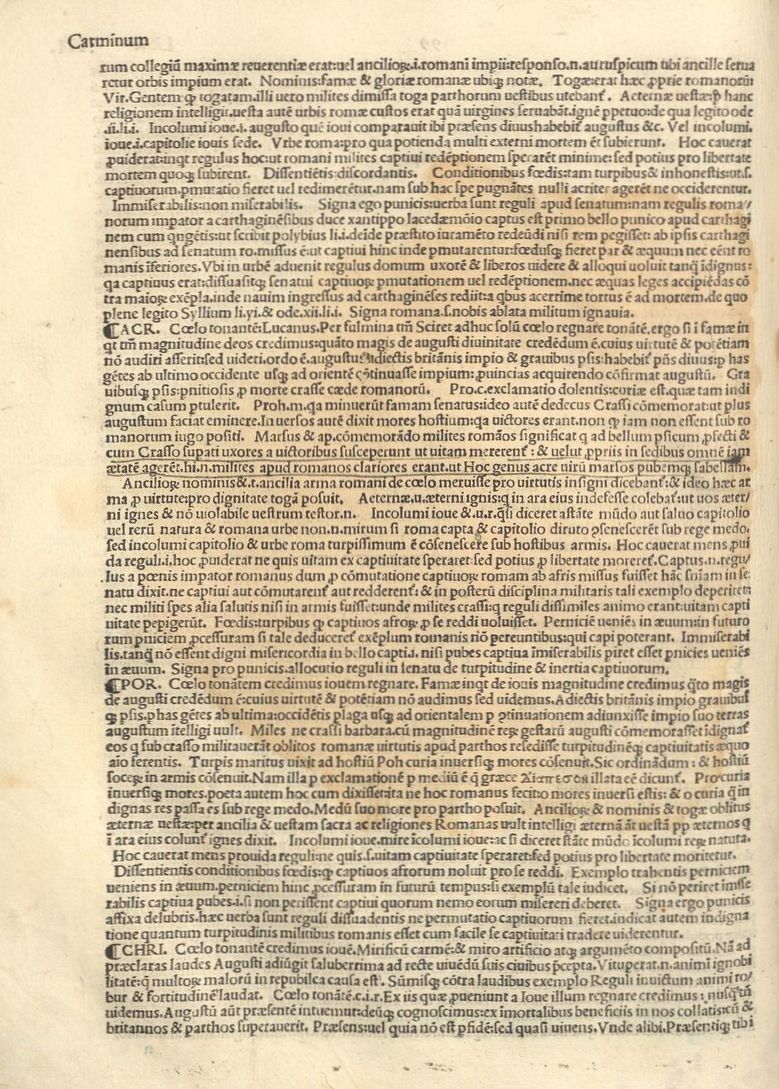 Carminum
rum collegiũ maximæ reuerentiæ erat:uel anciliorꝝ.i.romani impii:responso.n.auruspicum ubi ancille serua
retur orbis impium erat. Nominis:famæ & gloriæ romanæ ubiqꝫ notæ. Togæ:erat hæc ꝓprie romanorũ:
Vir.Gentem qꝫ togatam.illi uero milites dimissa toga parthorum uestibus utebanť. Aeternæ uestæ:ꝑ hanc
religionem intelligit.uesta autẽ urbis romæ custos erat quã uirgines seruabãt.ignẽ ꝑpetuo:de qua legito ode
.ii.li.i. Incolumi ioue.i.augusto quẽ ioui comparauit ibi præsens diuus habebiť augustus &c. Vel incolumi.
ioue.i.capitolie iouis sede. Vrbe roma:pro qua potienda multi externi mortem ẽt subierunt. Hoc cauerat
ꝓuiderat:inqt regulus hoc:ut romani milites captiui redẽptionem sperarẽt minime:sed potius pro libertate
mortem quoqꝫ subirent. Dissentiẽtis:discordantis. Conditionibus fœdis:tam turpibus & inhonestis:ut.s.
captiuorum.ꝑmutatio fieret uel redimerẽtur.nam sub hac spe pugnãtes nulli acriter agerẽt ne occiderentur.
Immiserabilis:non miserabilis. Signa ego punicis:uerba sunt reguli apud senatum:nam regulis roma/
norum impator a carthaginẽsibus duce xantippo lacedæmõio captus est primo bello punico apud carthagi
nem cum qngẽtis:ut scribit polybius li.i.deide præstito iuramẽto redeũdi nisi rem pegisset: ab ipsis carthagi
nensibus ad senatum ro.missus ẽ:ut captiui hinc inde ꝑmutarentur:fœdusqꝫ fieret par & æquum nec eẽnt ro
manis ĩferiores.Vbi in urbẽ aduenit regulus domum uxorẽ & liberos uidere & alloqui uoluit tanqꝫ ĩdignus:
qa captiuus erat:dissuasitqꝫ senatui captiuorꝝ ꝑmutationem uel redẽptionem.nec æquas leges accipiẽdas cõ
tra maiorꝝ exẽpla.inde nauim ingressus ad carthaginẽses rediit:a qbus acerrime tortus ẽ ad mortem.de quo
plene legito Syllium li.yi.& ode.xii.li.i. Signa romana.s.nobis ablata militum ignauia.
¶ACR. Cœlo tonantẽ:Lucanus.Per fulmina tm̃ Sciret adhuc solũ cœlo regnare tonãtẽ.ergo si i famæ in
qt tm̃ magnitudine deos credimus:quãto magis de augusti diuinitate credẽdum ẽ.cuius uirtutẽ & potẽtiam
nõ audiri asserit:sed uideri.ordo ẽ.augustus adiectis britãnis impio & grauibus psis:habebiť pñs diuus:p has
gẽtes ab ultimo occidente usqꝫ ad orientẽ cõtinuasse impium:ꝓuincias acquirendo cõfirmat augustũ. Gra
uibusqꝫ psis:pnitiosis ꝓ morte crasse cæde romanorũ. Pro.c.exclamatio dolentis:curiæ est.quæ tam indi
gnum casum ptulerit. Proh.m.qa minuerũt famam senatus:ideo autẽ dedecus Crassi cõmemorat:ut plus
augustum faciat eminere.Inuersos autẽ dixit mores hostium:qa uictores erant.non qꝫ iam non essent sub ro
manorum iugo positi. Marsus & ap.cõmemorãdo milites romãos significat q ad bellum psicum ꝓfecti &
cum Crasso supati uxores a uictoribus susceperunt ut uitam mererentť: & uelut ꝓpriis in sedibus omnẽ iam
ætatẽ agerẽt.hi.n.milites apud romanos clariores erant.ut Hoc genus acre uirũ marsos pubemqꝫ sabellam.
Anciliorꝝ nominis & .t.ancilia arma romani de cœlo meruisse pro uirtutis insigni dicebanť:& ideo hæc ar
ma ꝓ uirtute:pro dignitate togã posuit. Aeternæ.u.æterni ignis:q in ara eius indefesse colebať:ut uos æter/
ni ignes & nõ uiolabile uestrum testor.n. Incolumi ioue &.u.r.qsi diceret astãte mũdo aut saluo capitolio
uel rerũ natura & romana urbe non.n.mirum si roma capta & capitolio diruto ꝯsenescerẽt sub rege medo.
sed incolumi capitolio & urbe roma turpissimum ẽ cõsenescere sub hostibus armis. Hoc cauerat mens ꝓui
da reguli.i.hoc ꝓuiderat ne quis uitam ex captiuitate speraret:sed potius ꝓ libertate moreret̃.Captus.n.regu/
lus a pœnis impator romanus dum ꝓ cõmutatione captiuorꝝ romam ab afris missus fuisset hãc snĩam in se:
natu dixit.ne captiui aut cõmutarenť aut redderenť: & in posterũ disciplina militaris tali exemplo deperiret:
nec militi spes alia salutis nisi in armis fuisset:unde milites crassi:q reguli dissimiles animo erant:uitam capti
uitate pepigerũt. Fœdis:turpibus qꝫ captiuos afrorꝝ ꝓ se reddi uoluisset. Perniciẽ ueniẽs in æuum:in futuro
rum pniciem ꝓcessuram si tale deduceret exẽplum romanis nõ pereuntibus:qui capi poterant. Immiserabi
lis.tanqꝫ nõ essent digni misericordia in bello capti.i. nisi pubes captiua ĩmiserabilis piret esset pnicies ueniẽs
in æuum. Signa pro punicis.allocutio reguli in senatu de turpitudine & inertia captiuorum.
¶POR. Cœlo tonãtem credimus iouem regnare.Famæ inqt de iouis magnitudine credimus q̃to magis
de augusti credẽdum ẽ:cuius uirtutẽ & potẽtiam nõ audimus sed uidemus.Adiectis britãnis impio grauibuſ
qꝫ psis.p has gẽtes ab ultima:occidẽtis plaga usqꝫ ad orientalem ꝑ ꝯtinuationem adiunxisse impio suo terras
augustum itelligi uult. Miles ne crassi barbara.cũ magnitudinẽ rerꝝ gestarũ augusti cõmemorasset:idignať
eos q sub crasso militauerãt oblitos romanæ uirtutis apud parthos resedisse turpitudinẽqꝫ captiuitatis æquo
aĩo ferentis. Turpis maritus uixit ad hostiũ Poh curia inuersiqꝫ mores cõsenuit.Sic ordinãdum: & hostiũ
socerorꝝ in armis cõsenuit.Nam illa p exclamationẽ p mediũ ẽ q græce illata eẽ dicunť. Pro curia
inuersiqꝫ mores.poeta autem hoc cum dixisset:ita ne hoc romanus fecit:o mores inuersi estis: & o curia q̃ in
dignas res passa es sub rege medo.Medũ suo more pro partho posuit. Anciliorꝝ & nominis & togæ oblitus
æternæ uestæ:per ancilia & uestam sacra ac religiones Romanas uult intelligi æternã ãt uestã pp æternos q
ĩ ara eius colunť ignes dixit. Incolumi ioue.mire ĩcolumi ioue:ac si diceret stãte mũdo ĩcolumi rerꝝ natura.
Hoc cauerat mens prouida reguli:ne quis.s.uitam captiuitate speraret:sed potius pro libertate moritetur.
Dissentientis conditionibus fœdis:qꝫ captiuos afrorum noluit pro se reddi. Exemplo trahentis perniciem
ueniens in æuum.perniciem hinc ꝓcessuram in futurũ tempus:si exemplũ tale iudicet. Si nõ periret ĩmise
rabilis captiua pubes.i.si non perissent captiui quorum nemo eorum misereri deberet. Signa ergo punicis
affixa delubris.hæc uerba sunt reguli dissuadentis ne permutatio captiuorum fieret.indicat autem indigna
tione quantum turpitudinis militibus romanis esset cum facile se captiuitati tradere uiderentur.
¶CHRI. Cœlo tonantẽ credimus iouẽ.Mirificũ carmẽ:& miro artificio atqꝫ argumẽto compositũ.Nã ad
præclaras laudes Augusti adiũgit saluberrima ad recte uiuẽdũ suis ciuibus p̃cepta.Vituperat.n.animĩ ignobi
litatẽ:q̃ multorꝝ malorũ in republica causa est. Sũmisqꝫ cõtra laudibus exemplo Reguli inuictum animi ro/
bur & fortitudinẽ laudat. Cœlo tonãtẽ.c.i.r.Ex iis quæ ꝓueniunt a Ioue illum regnare credimus: nusqꝫ tm̃
uidemus.Augustũ aũt præsentẽ intuemur:deũqꝫ cognoscimus:ex ĩmortalibus beneficiis in nos collatis:cũ &
britannos & parthos superauerit. Præsens:uel quia nõ est ꝑfidẽ:sed quasi uiuens.Vnde alibi.Præsentiqꝫ tibi